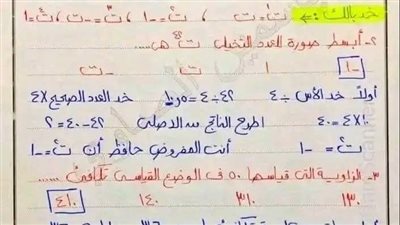 خد بالك :⇐ ت¹=ت ، ت²=-١ ، ت³=-ت ، ت⁴=١
٢- أبسط صورة للعدد التخيلي ت⁴² هى...
-١ ١ ت -ت
أولاً خد الأس ÷ ٤ ٤٢ ÷ ٤ = ١٠٫٥ خد العدد الصحيح ×٤
١٠×٤ = ٤٠ اطرح الناتج من الاصلى ٤٢-٤٠=٢
ت² = -١ أنت المفروض حافظ أن ت² = -١
٣- الزاوية التى قياسها ٥٠ فى الوضع القياسى تكافئ...
١٣٠ ٣١٠ ١٤٠ ٤١٠